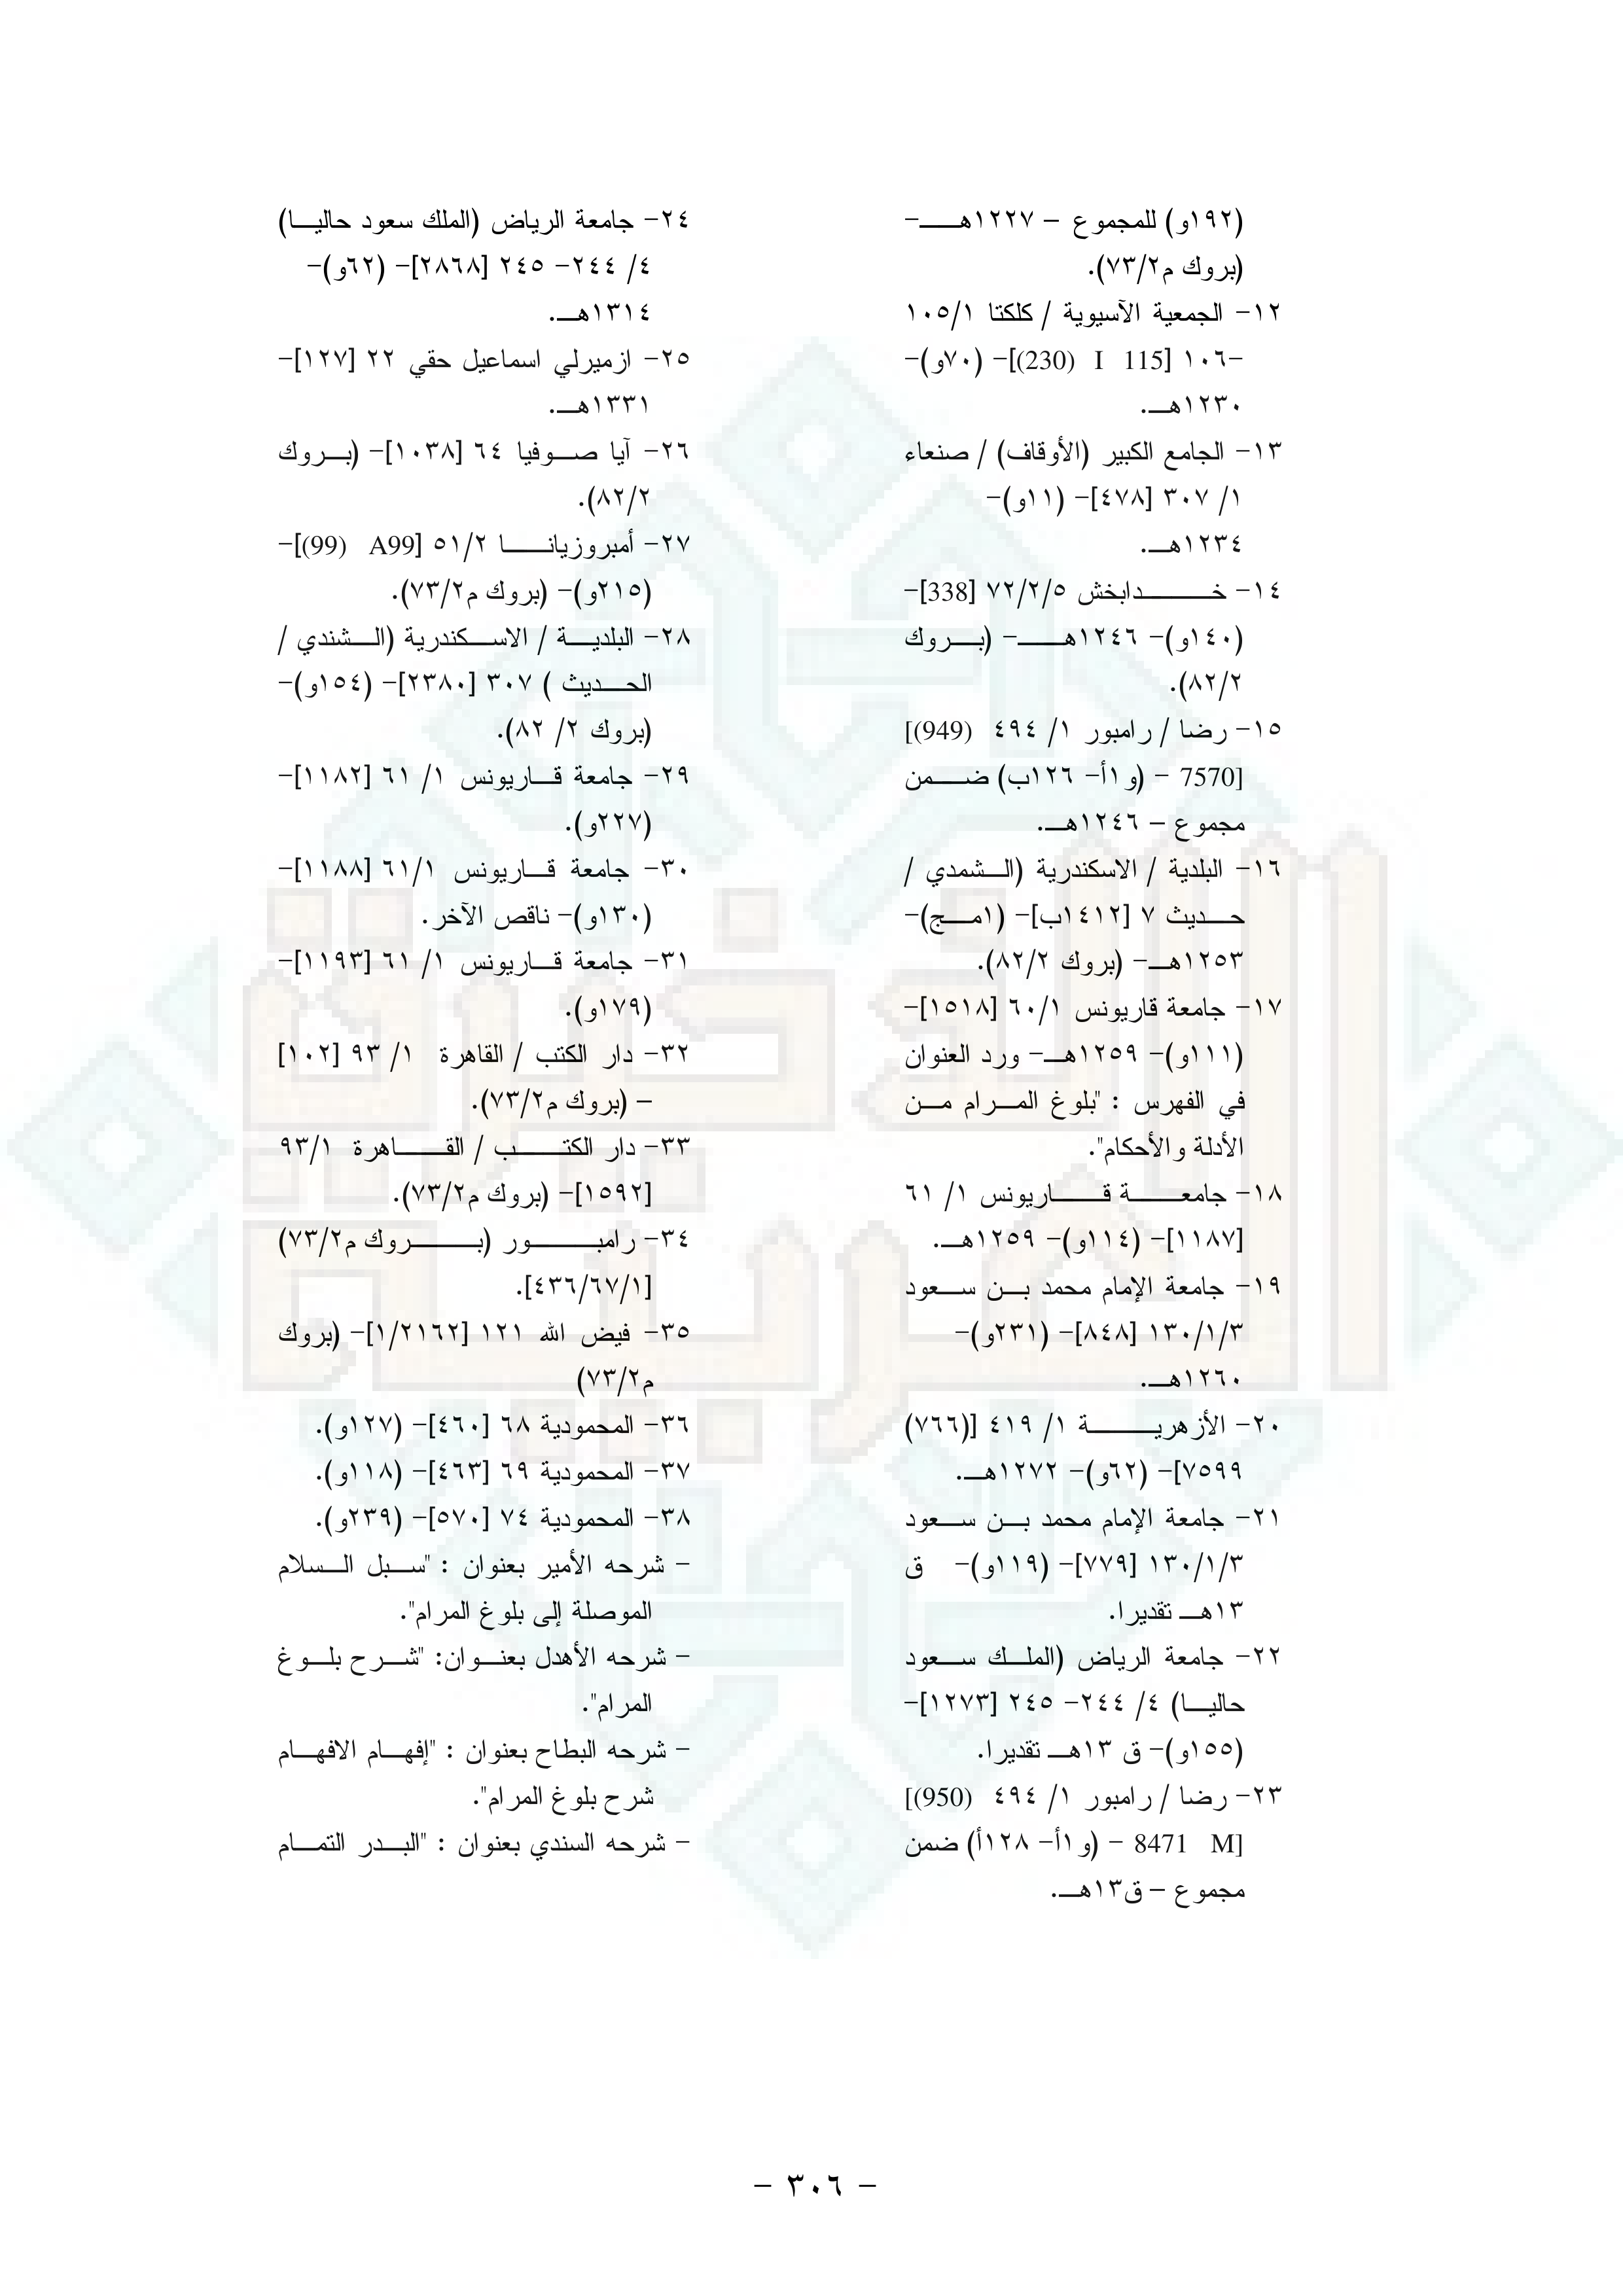 (١٩٢و) للمجموع – ١٢٢٧هـ-
(بروك م٧٣/٢).
١٢- الجمعية الآسيوية / كلكتا ١٠٥/١
-١٠٦ [I 115 (230)]- (٧٠و)-
١٢٣٠هـ.
١٣- الجامع الكبير (الأوقاف) / صنعاء
١/ ٣٠٧ [٤٧٨]- (١١و)-
١٢٣٤هـ.
١٤- خدابخش ٧٢/٢/٥ [338]-
(١٤٠و)- ١٢٤٦هـ- (بروك
٨٢/٢).
١٥- رضا / رامبور ١/ ٤٩٤ [(949)
7570] - (و١أ- ١٢٦ب) ضمن
مجموع – ١٢٤٦هـ.
١٦- البلدية / الاسكندرية (الشمدي /
حديث ٧ [١٤١٢ب]- (١مج)-
١٢٥٣هـ- (بروك ٨٢/٢).
١٧- جامعة قاريونس ٦٠/١ [١٥١٨]-
(١١١و)- ١٢٥٩هـ- ورد العنوان
في الفهرس : "بلوغ المرام من
الأدلة والأحكام".
١٨- جامعة قاريونس ١/ ٦١
[١١٨٧]- (١١٤و)- ١٢٥٩هـ.
١٩- جامعة الإمام محمد بن سعود
١٣٠/١/٣ [٨٤٨]- (٢٣١و)-
١٢٦٠هـ.
٢٠- الأزهرية ١/ ٤١٩ [(٧٦٦)
٧٥٩٩]- (٦٢و)- ١٢٧٢هـ.
٢١- جامعة الإمام محمد بن سعود
١٣٠/١/٣ [٧٧٩]- (١١٩و)- ق
١٣هـ تقديرا.
٢٢- جامعة الرياض (الملك سعود
حاليا) ٤/ ٢٤٤- ٢٤٥ [١٢٧٣]-
(١٥٥و)- ق ١٣هـ تقديرا.
٢٣- رضا / رامبور ١/ ٤٩٤ [(950)
8471 M] - (و١أ- ١٢٨أ) ضمن
مجموع – ق١٣هـ.
٢٤- جامعة الرياض (الملك سعود حاليا)
٤/ ٢٤٤- ٢٤٥ [٢٨٦٨]- (٦٢و)-
١٣١٤هـ.
٢٥- ازميرلي اسماعيل حقي ٢٢ [١٢٧]-
١٣٣١هـ.
٢٦- آيا صوفيا ٦٤ [١٠٣٨]- (بروك
٨٢/٢).
٢٧- أمبروزيانا ٥١/٢ [A99 (99)]-
(٢١٥و)- (بروك م٧٣/٢).
٢٨- البلدية / الاسكندرية (الشندي /
الحديث ) ٣٠٧ [٢٣٨٠]- (١٥٤و)-
(بروك ٢/ ٨٢).
٢٩- جامعة قاريونس ١/ ٦١ [١١٨٢]-
(٢٢٧و).
٣٠- جامعة قاريونس ٦١/١ [١١٨٨]-
(١٣٠و)- ناقص الآخر.
٣١- جامعة قاريونس ١/ ٦١ [١١٩٣]-
(١٧٩و).
٣٢- دار الكتب / القاهرة ١/ ٩٣ [١٠٢]
– (بروك م٧٣/٢).
٣٣- دار الكتب / القاهرة ٩٣/١
[١٥٩٢]- (بروك م٧٣/٢).
٣٤- رامبور (بروك م٧٣/٢)
[٤٣٦/٦٧/١].
٣٥- فيض الله ١٢١ [١/٢١٦٢]- (بروك
م٧٣/٢)
٣٦- المحمودية ٦٨ [٤٦٠]- (١٢٧و).
٣٧- المحمودية ٦٩ [٤٦٣]- (١١٨و).
٣٨- المحمودية ٧٤ [٥٧٠]- (٢٣٩و).
- شرحه الأمير بعنوان : "سبل السلام
الموصلة إلى بلوغ المرام".
- شرحه الأهدل بعنوان: "شرح بلوغ
المرام".
- شرحه البطاح بعنوان : "إفهام الافهام
شرح بلوغ المرام".
- شرحه السندي بعنوان : "البدر التمام
- ٣٠٦ -